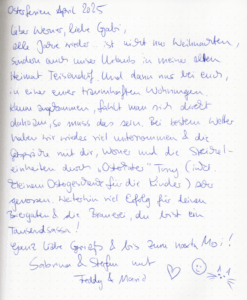 Osterferien April 2025
Liebe Werner, liebe Gabi,
alle Jahre wieder ist nicht nur Weihnachten,
sondern auch unser Urlaub in meiner alten
Heimat Teisendorf. Und dann nur bei euch,
in einer eurer traumhaften Wohnungen.
Kaum angekommen, fühlt man sich direkt
daheim, so muss das sein. Bei bestem Wetter
haben wir wieder viel unternommen & die
Gespräche mit dir, Werner und die
einheiten durch Timmy (inkl.
kleinem Ostergeschenk für die Kinder) sehr
genossen. Weiterhin viel Erfolg für deinen
Biergarten & die Brauerei, du bist ein
Tausendsassa!
Ganz liebe Grüße & bis zum nächsten Mal!
Sabrina & Stefan mit
Freddy &